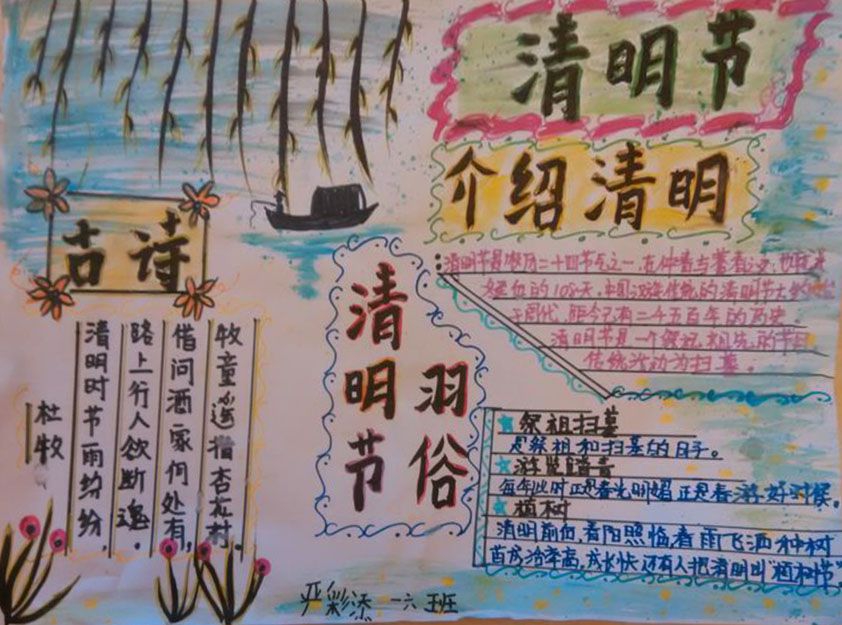 清明节
介绍清明
清明节是农历二十四节气之一,在仲春与暮春之交,也就是
的108天,中国汉族传统的清明节大约始
于周代,距今已有二千五百年的历史
清明节是一个祭祀祖先的节日
传统活动为扫墓。
古诗
杜牧
清明时节雨纷纷,
路上行人欲断魂。
借问酒家何处有,
牧童遥指杏花村.
清明节
羽俗
祭祖扫墓
是祭祖和扫墓的日子。
游览踏青
每年此时正是春光明媚正是春游好时候。
植树
清明前后,春阳照临,春雨飞洒种树
苗成活率高,成长快还有人把清明叫"植树节"
严彩添 一六班